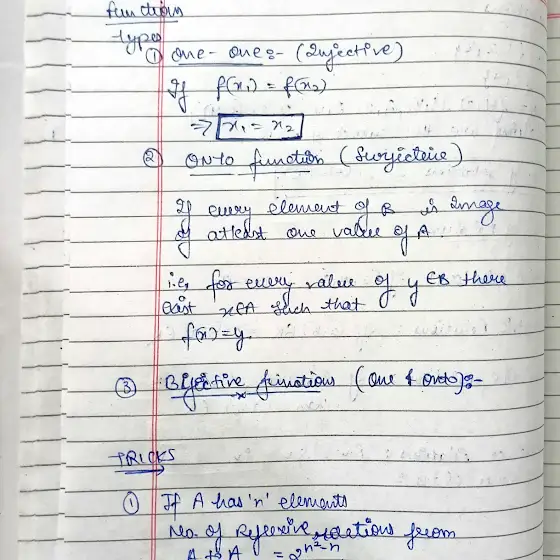 functions
types
① one-one:- (Injective)
If f(x₁) = f(x₂)
⇒ x₁ = x₂
② ONTO function (Surjective)
If every element of B is Image
of atleast one value of A.
i.e, for every value of y ∈ B there
exist x∈A such that
f(x)=y.
③ Bijective functions (One & onto):-
TRICKS
① If A has 'n' elements
No. of Reflexive relations from
A to A = 2^(n²-n)